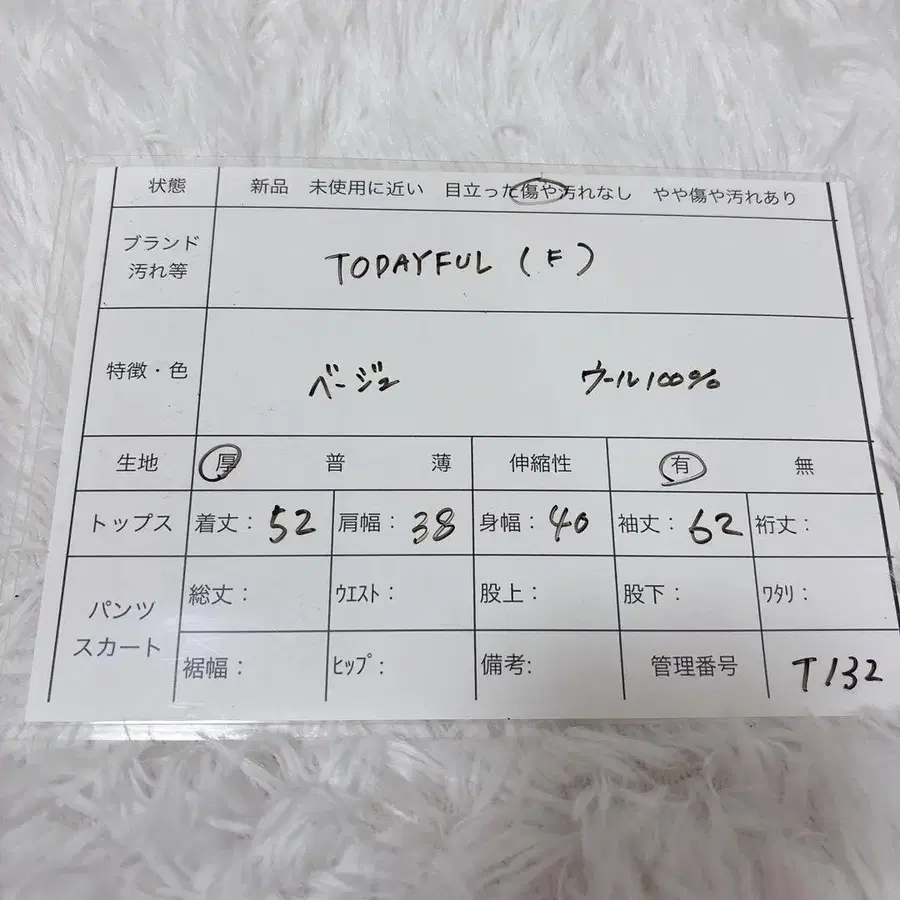 状態 新品 未使用に近い 目立った傷や汚れなし やや傷や汚れあり
ブランド
汚れ等
TODAYFUL (F)
特徴・色 ベージュ ウール100%
生地 厚 普 薄 伸縮性 有 無
トップス 着丈: 52 肩幅: 38 身幅: 40 袖丈: 62 裄丈:
パンツ
スカート
総丈: ウエスト: 股上: 股下: ワタリ:
裾幅: ヒップ: 備考: 管理番号 T132